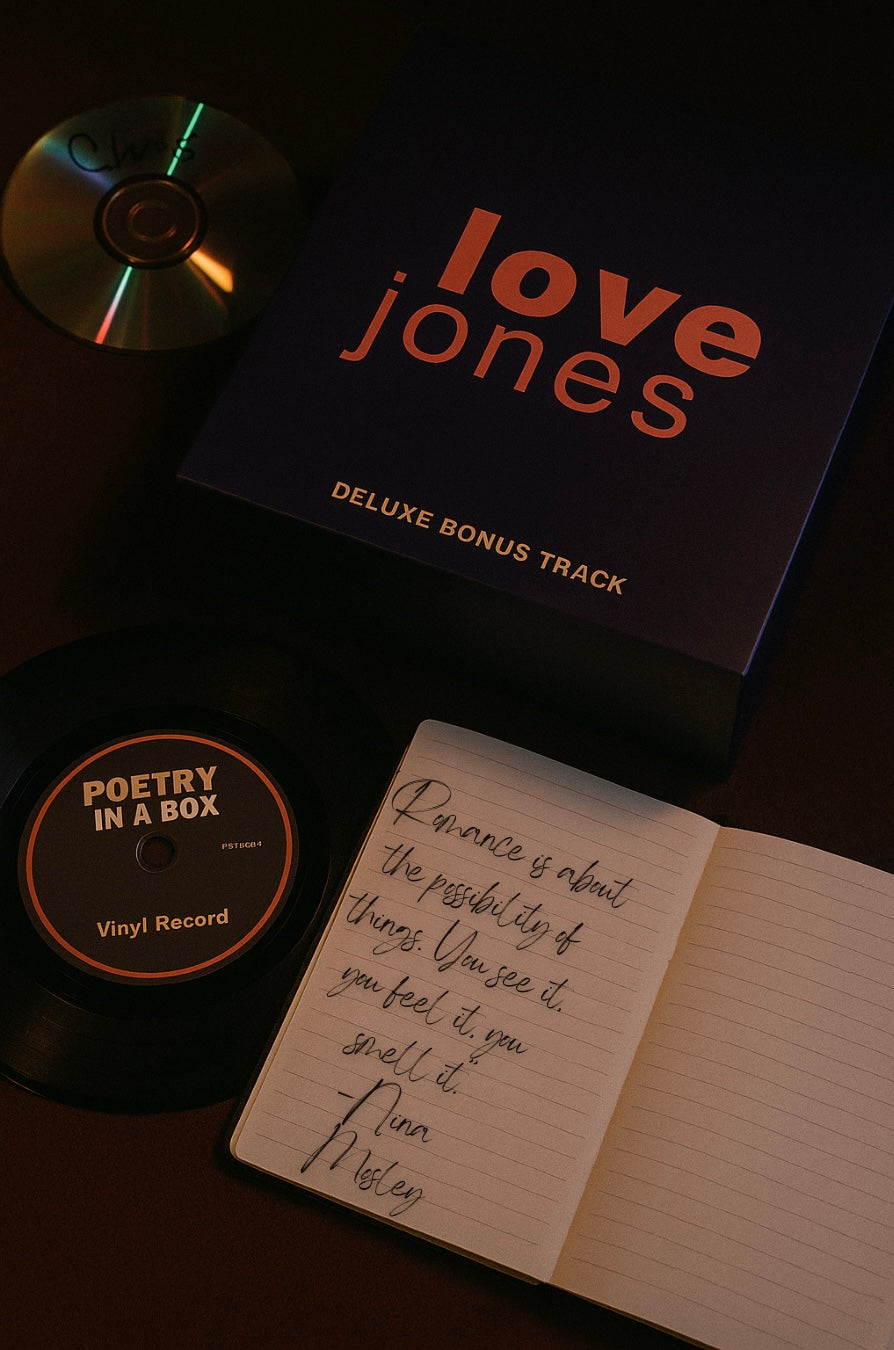 love
jones
DELUXE BONUS TRACK
POETRY
IN A BOX
Vinyl Record
Romance is about
the possibility of
things. You see it,
you feel it, you
smell it."
-Nina
Mosley